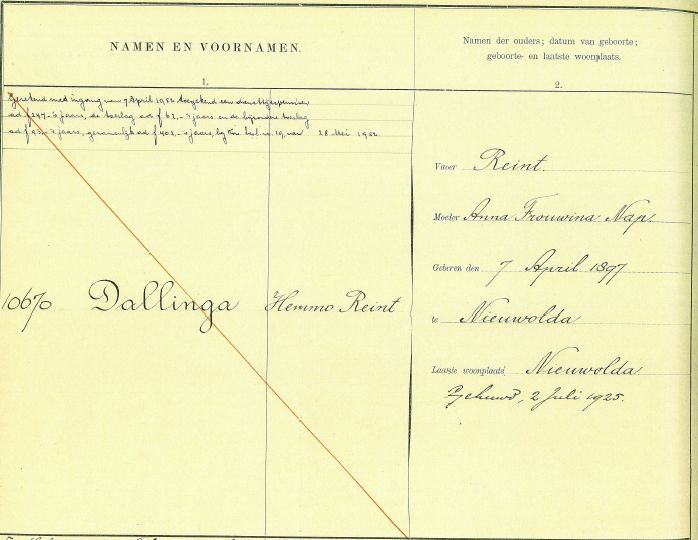 NAMEN EN VOORNAMEN.
Namen der ouders; datum van geboorte;
geboorte- en laatste woonplaats.
1.
2.
Gerekend met ingang van 7 April 1952 toegekend een diensttijdpensioen
ad f 247.- 's jaars, de toeslag ad f 62,- 's jaars en de bijzondere toeslag
ad f 93.- 's jaars, gezamenlijk ad f 402,- 's jaars, bij Kon. besl. no. 19, van 28 Mei 1952
Vader Reint.
Moeder Anna Trouwina Nap.
Geboren den 7 April 1897
10670 Dallinga Hemmo Reint
te Nieuwolda
Laatste woonplaats Nieuwolda
Gehuwd, 2 Juli 1925.